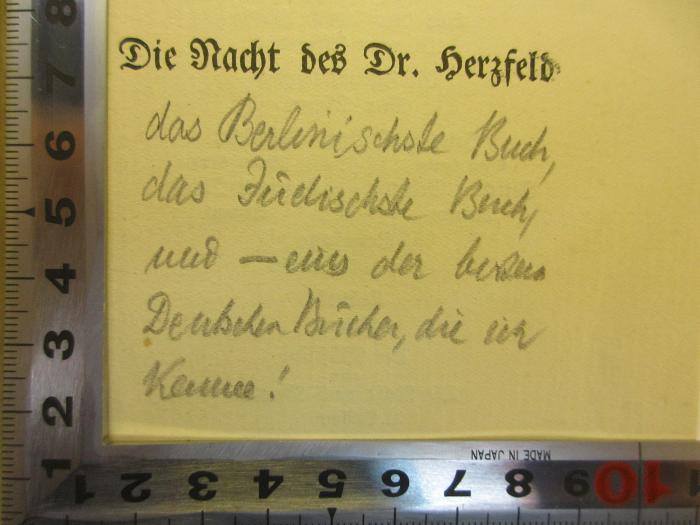 Die Nacht des Dr. Herzfeld
das Berlinischste Buch,
das Jüdischste Buch,
und — eins der besten
Deutschen Bücher, die ich
Kenne!
MADE IN JAPAN
8
7
6
5
4
3
2
1
1 2 3 4 5 6 7 8 9 10 11